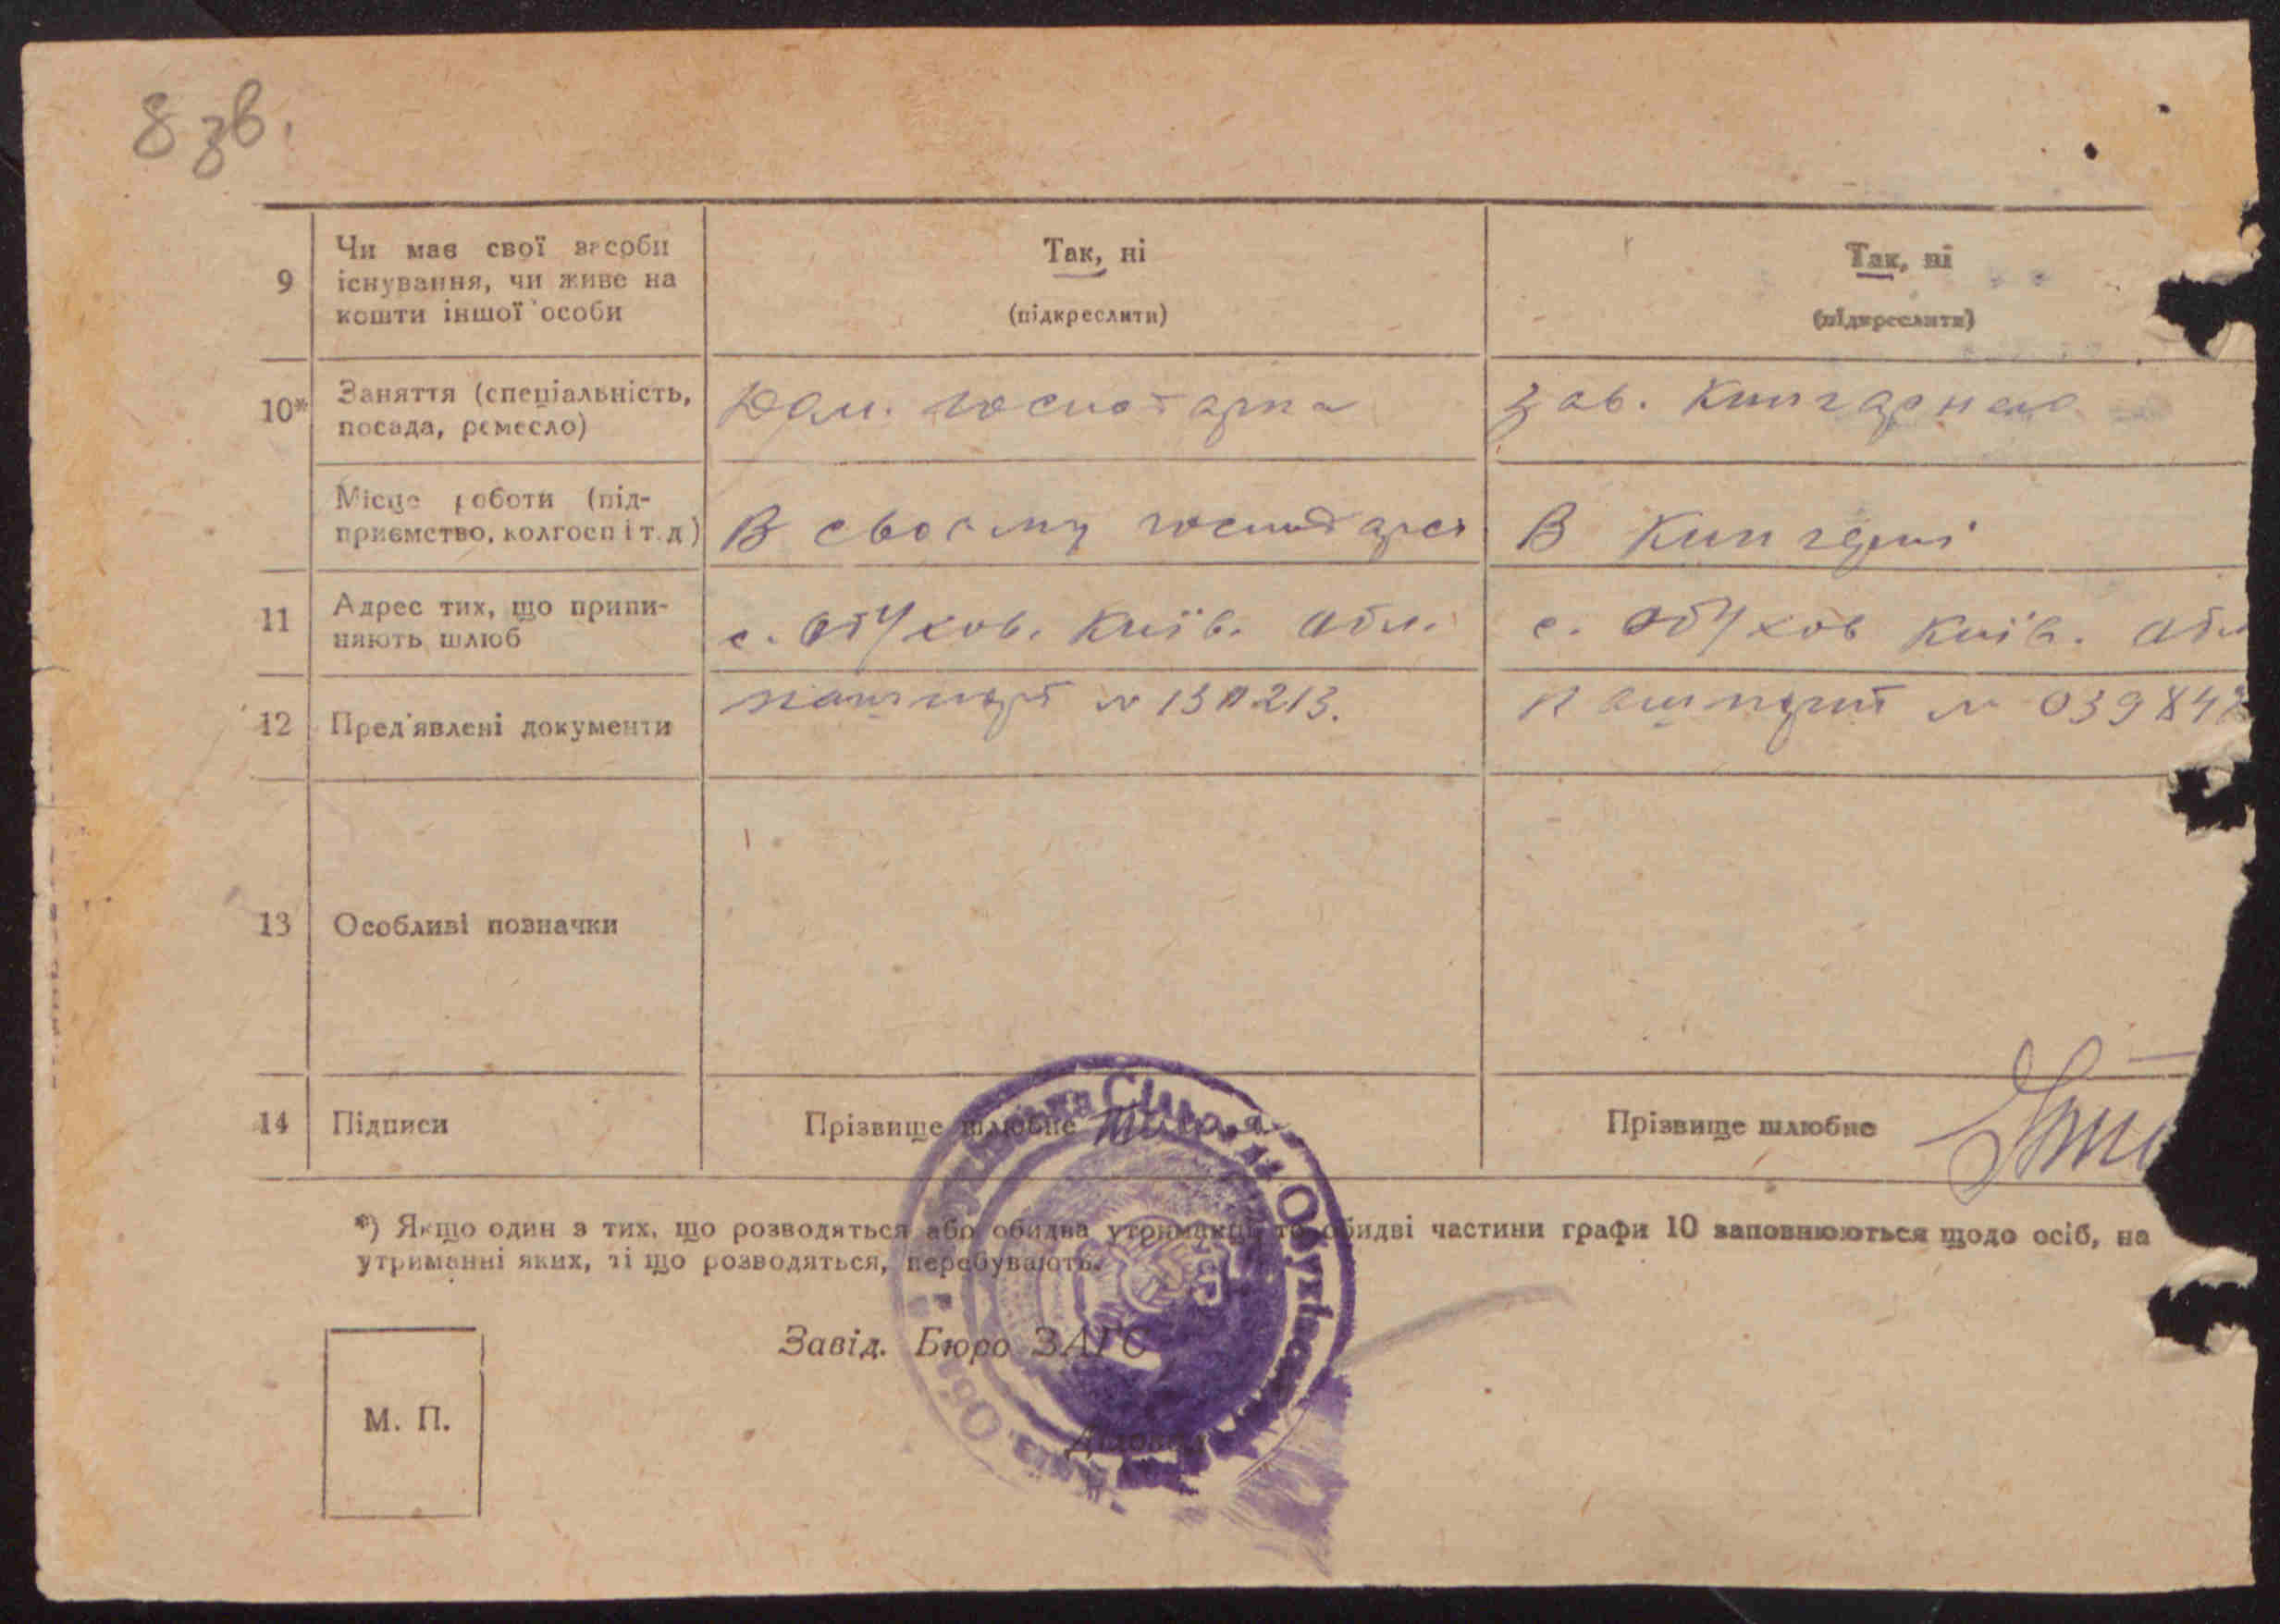 8 зв.
9
Чи має свої засоби
існування, чи живе на
кошти іншої особи
Так, ні
(підкреслити)
Так, ні
(підкреслити)
10*
Заняття (спеціальність,
посада, ремесло)
Дом. господарка
Зав. Книгарнею
Місце роботи (під-
приємство, колгосп і т.д)
В своєму господарс
В Книгарні
11
Адрес тих, що припи-
няють шлюб
с. Обухов. Київ. Обл.
с. Обухов Київ. Обл
12
Пред'явлені документи
пашпорт №
Пашпорт № 03984
13
Особливі позначки
14
Підписи
Прізвище шлюбне
Прізвище шлюбне
*) Якщо один з тих, що розводяться або обидва утриманці, то обидві частини графи 10 заповнюються щодо осіб, на
утриманні яких, ті що розводяться, перебувають.
Завід. Бюро ЗАГС
М. П.
Діловод